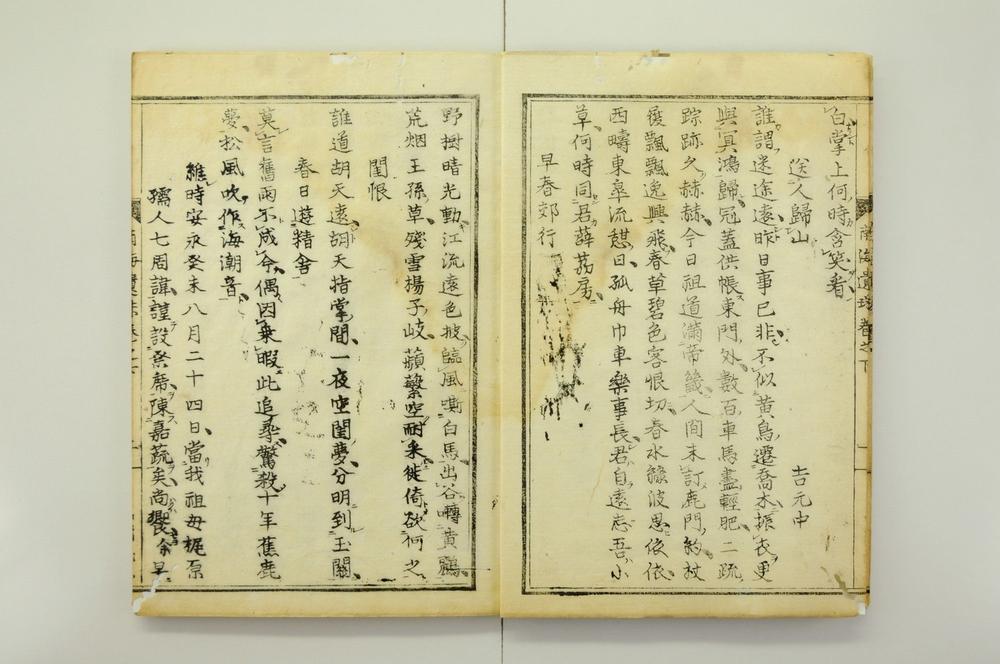 白掌上何時含笑看
送人歸山
吉元中
誰謂迷途遠昨日事已非不似黃鳥遷喬木振衣更
與冥鴻歸冠蓋供帳東門外數百車馬盡輕肥二疏
踪跡久赫赫今日祖道滿帝畿人間未訂鹿門約杖
履飄飄逸興飛春草碧色客恨切春水綠波思依依
西疇東皋流憇日孤舟巾車樂事長君自遠志吾小
草何時同君薜荔房
早春郊行
野樹晴光動江流遠色披臨風嘶白馬出谷囀黃鸝
荒烟王孫草殘雪揚子岐蘋蘩空耐采徙倚欲何之
閨恨
誰道胡天遠胡天指掌間一夜空閨夢分明到玉關
春日遊精舍
莫言舊雨不成今偶因乘暇此追尋驚殺十年蕉鹿
夢松風吹作海潮音
維時安永癸未八月二十四日當我祖母梶原
孺人七周諱謹設祭席陳嘉蔬矣尚饗余早